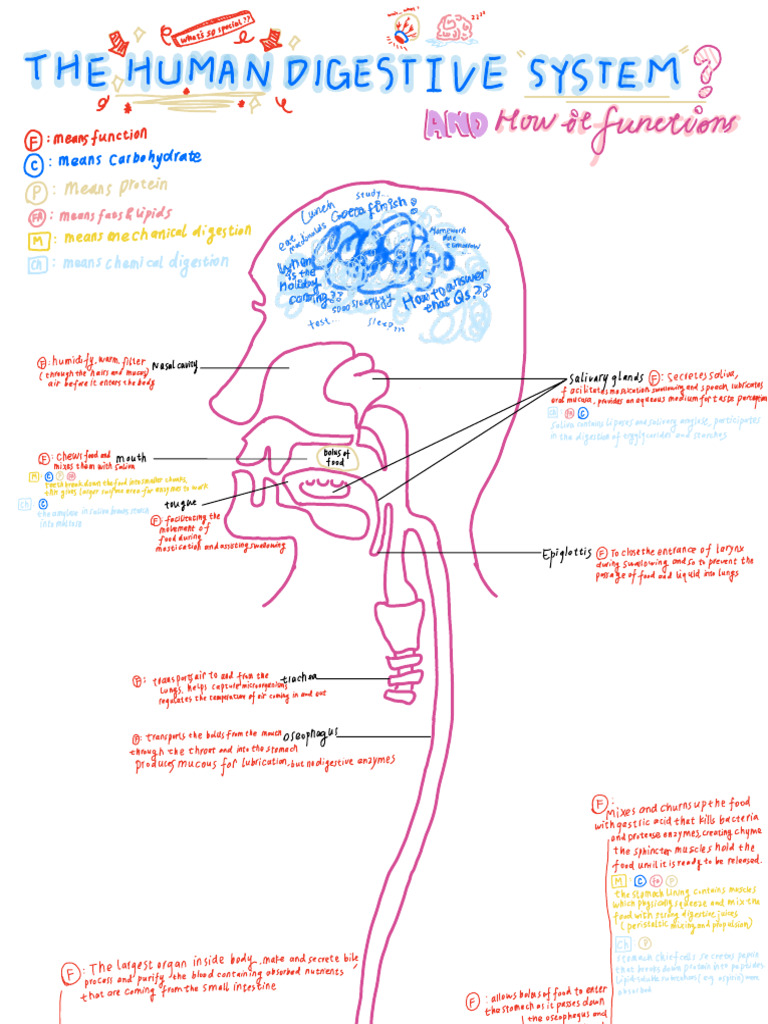 what's so special??
THE HUMAN DIGESTIVE "SYSTEM"?
AND How it functions
F : means function
C : means Carbohydrate
P : Means protein
FA : means fats & lipids
M : means mechanical digestion
Ch : means chemical digestion
study...
Lunch
Gotta finish!
eat macdonalds
Homework due tomorrow...
When is the holiday coming??
sooo sleepyyy
How to answer that Qs.??
test...
sleep...
F : humidify, warm, filter
(through the hairs and mucus)
air before it enters the body
Nasal cavity
Salivary glands
F : Secretes saliva,
facilitates mastication, swallowing and speech, lubricates
oral mucosa, provides an aqueous medium for taste perception
Ch : FA C
Saliva contains lipases and salivary amylase, participates
in the digestion of triglycerides and starches
bolus of food
F : chews food and
mixes them with saliva
mouth
M : C P FA
teeth break down the food into smaller chunks,
this gives larger surface area for enzymes to work
Ch : C
the amylase in saliva breaks starch
into maltose
tougue
F : facilitating the
movement of
food during
mastication and assisting swallowing
Epiglottis
F : To close the entrance of larynx
during swallowing and so to prevent the
passage of food and liquid into lungs
F : transports air to and from the
lungs, helps capture microorganisms
regulates the temperature of air coming in and out
trachea
F : transports the bolus from the mouth
through the throat and into the stomach
produces mucous for lubrication, but no digestive enzymes
oseophagus
F :
Mixes and churns up the food
with gastric acid that kills bacteria
and protease enzymes, creating chyme
the sphincter muscles hold the
food until it is ready to be released.
M C FA P
the stomach lining contains muscles
which physically squeeze and mix the
food with strong digestive juices
(peristaltic mixing and propulsion)
Ch : P
Stomach chief cells secretes pepsin
that breaks down protein into peptides.
Lipid-soluble substances (eg aspirin) are
absorbed
F : The largest organ inside body, make and secrete bile
process and purify the blood containing absorbed nutrients
that are coming from the small intestine
F : allows bolus of food to enter
the stomach as it passes down
(the oseophagus and